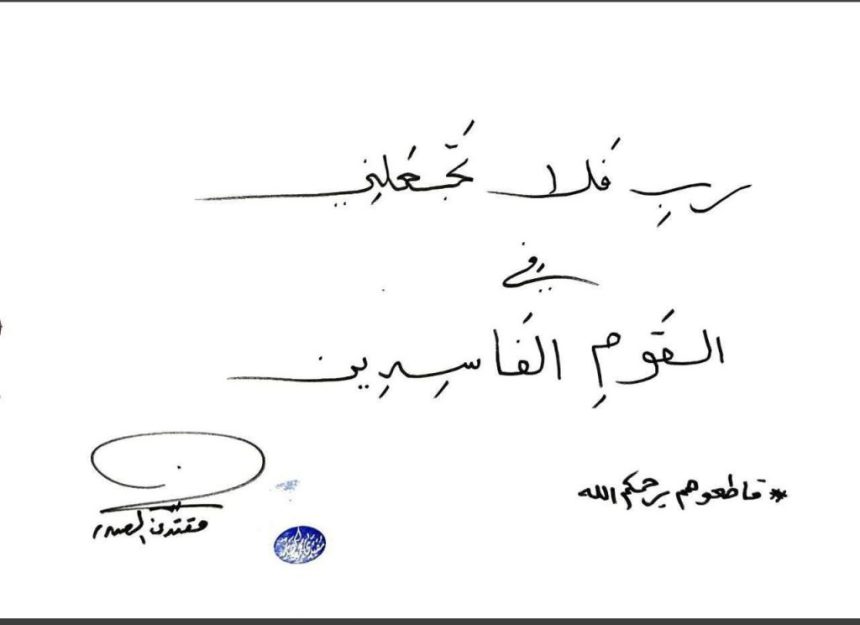 ربِ فَلا تَجْعَلنِي
في
القَومِ الفَاسِدِين
* قاطعوهم يرحمكم الله
مقتدى الصدر